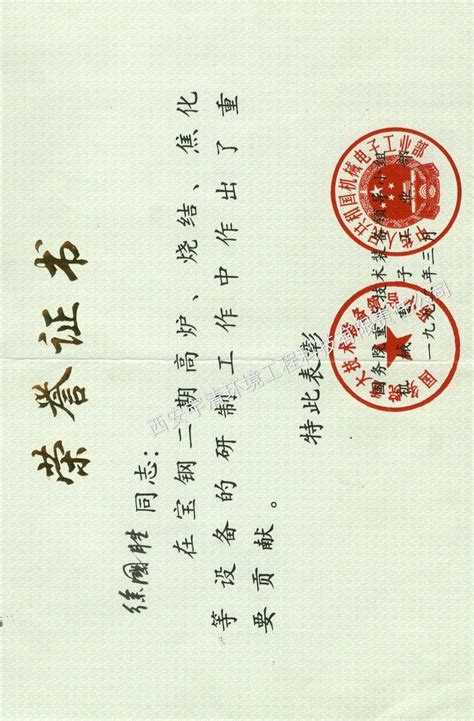 荣誉证书
徐國胜同志:
在宝钢二期高炉、烧结、焦化
等设备的研制工作中作出了重
要贡献。
特此表彰
国务院重大技术装备领导小组
机械电子工业部
年三月
中华人民共和国机械电子工业部
大技术装备
西安宇清环境工程